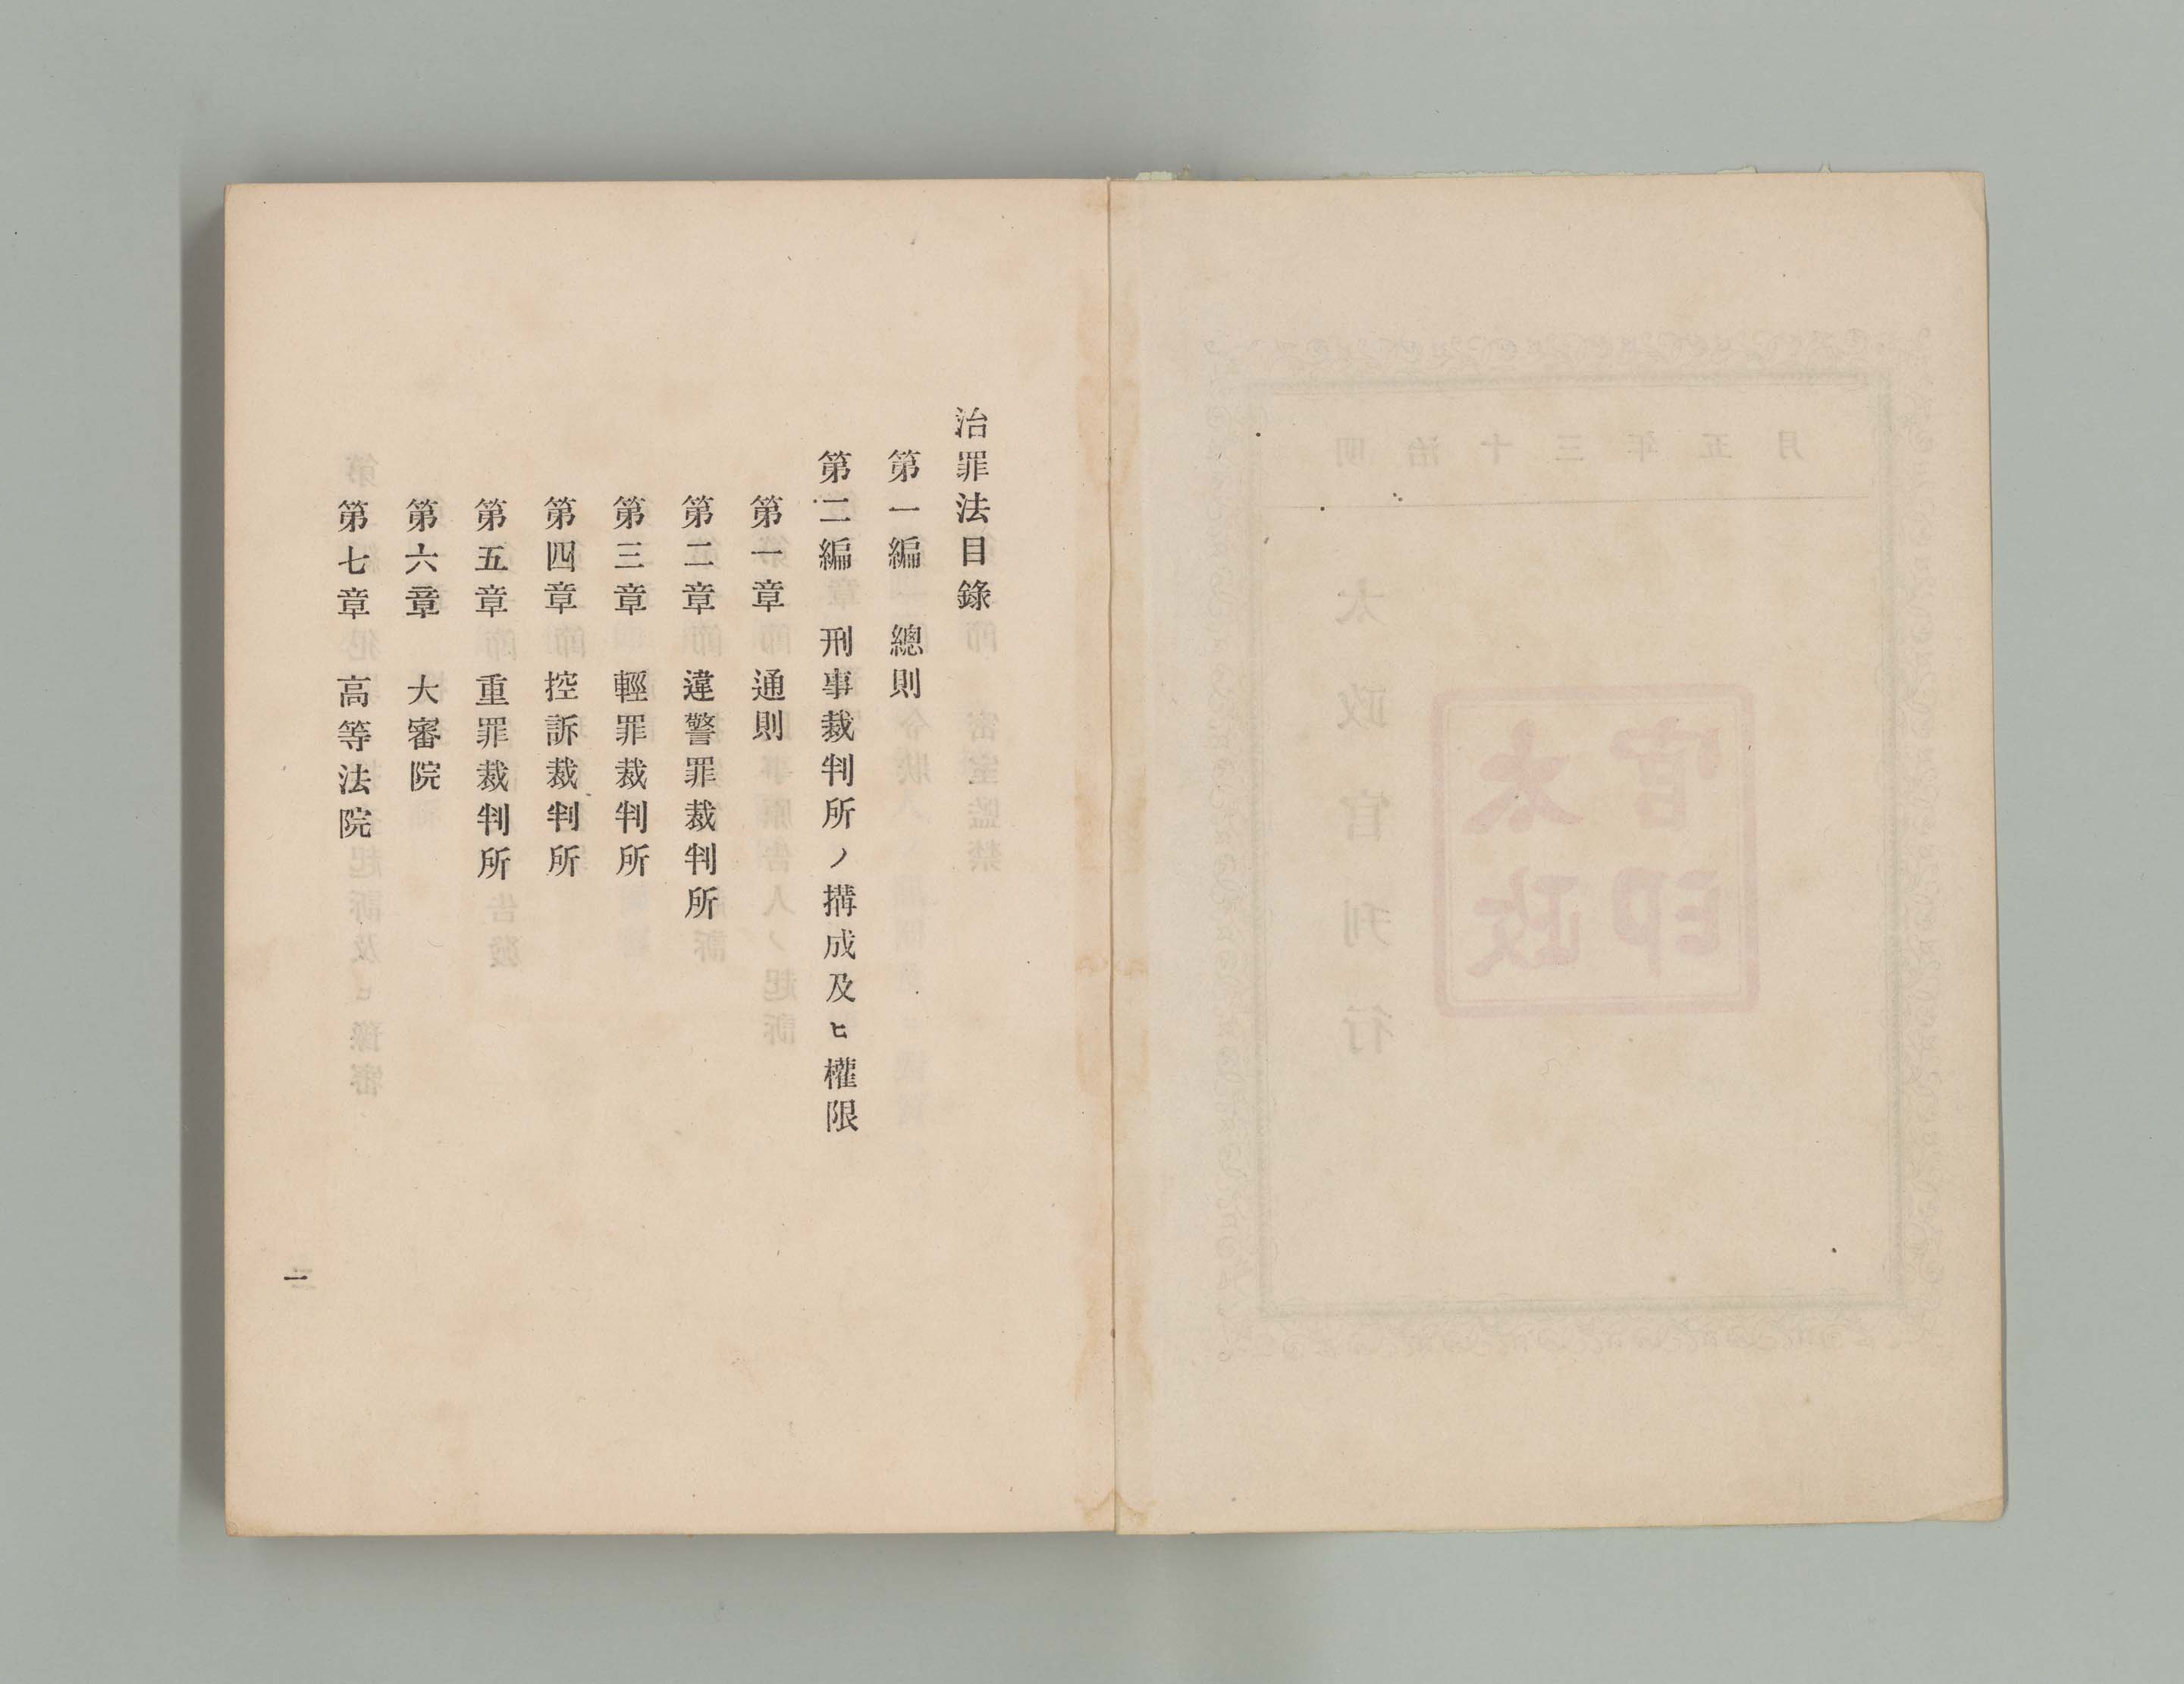 治罪法目錄
第一編 總則
第二編 刑事裁判所ノ搆成及ヒ權限
第一章 通則
第二章 違警罪裁判所
第三章 輕罪裁判所
第四章 控訴裁判所
第五章 重罪裁判所
第六章 大審院
第七章 高等法院
一